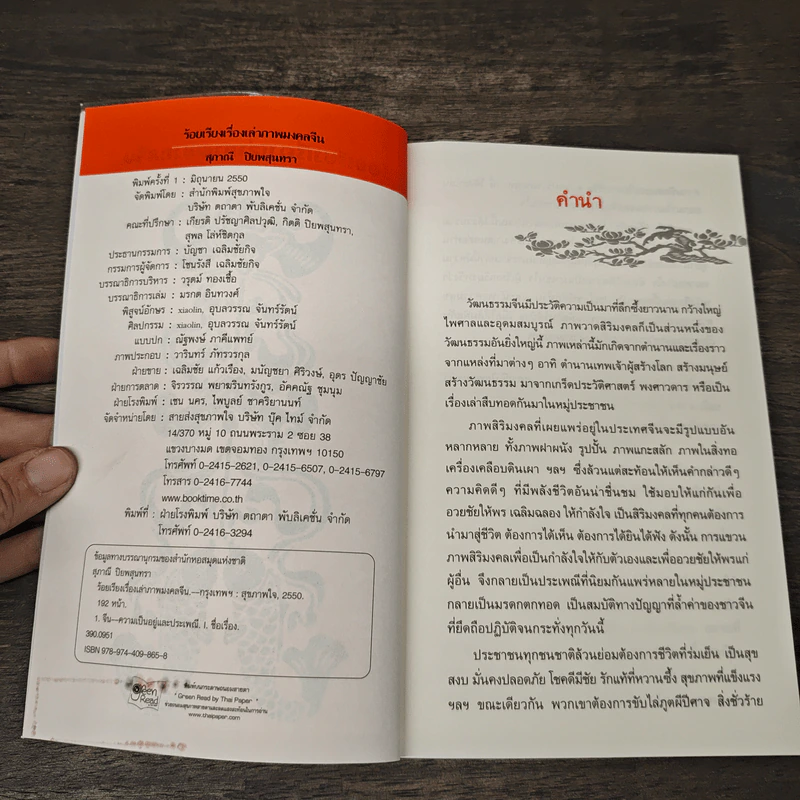 ร้อยเรียงเรื่องเล่าภาพมงคลจีน
สุภาณี ปิยพสุนทรา
พิมพ์ครั้งที่ 1 : มิถุนายน 2550
จัดพิมพ์โดย : สำนักพิมพ์สุขภาพใจ
บริษัท ตถาตา พับลิเคชั่น จำกัด
คณะที่ปรึกษา : เกียรติ ปรัชญาศิลปวุฒิ, กิตติ ปิยพสุนทรา,
สุพล โล่ห์ชิตกุล
ประธานกรรมการ : บัญชา เฉลิมชัยกิจ
กรรมการผู้จัดการ : โชนรังสี เฉลิมชัยกิจ
บรรณาธิการบริหาร : วรุตม์ ทองเชื้อ
บรรณาธิการเล่ม : มรกต อินทวงศ์
พิสูจน์อักษร : xiaolin, อุบลวรรณ จันทร์รัตน์
ศิลปกรรม : xiaolin, อุบลวรรณ จันทร์รัตน์
แบบปก : ณัฐพงษ์ ภาคีแพทย์
ภาพประกอบ : วารินทร์ ภัทรวรกุล
ฝ่ายขาย : เฉลิมชัย แก้วเรือง, มนัญชยา ศิริวงษ์, อุดร ปัญญาชัย
ฝ่ายการตลาด : จิรวรรณ พยามรินทรังกูร, อัคคณัฐ ชุมนุม
ฝ่ายโรงพิมพ์ : เชน นคร, ไพบูลย์ ชาคริยานนท์
จัดจำหน่ายโดย : สายส่งสุขภาพใจ บริษัท บุ๊ค ไทม์ จำกัด
14/370 หมู่ 10 ถนนพระราม 2 ซอย 38
แขวงบางมด เขตจอมทอง กรุงเทพฯ 10150
โทรศัพท์ 0-2415-2621, 0-2415-6507, 0-2415-6797
โทรสาร 0-2416-7744
www.booktime.co.th
พิมพ์ที่ : ฝ่ายโรงพิมพ์ บริษัท ตถาตา พับลิเคชั่น จำกัด
โทรศัพท์ 0-2416-3294
ข้อมูลทางบรรณานุกรมของสำนักหอสมุดแห่งชาติ
สุภาณี ปิยพสุนทรา
ร้อยเรียงเรื่องเล่าภาพมงคลจีน.—กรุงเทพฯ : สุขภาพใจ, 2550.
192 หน้า.
1. จีน—ความเป็นอยู่และประเพณี. I. ชื่อเรื่อง.
390.0951
ISBN 978-974-409-865-8
Green Read
พิมพ์บนกระดาษถนอมสายตา
" Green Read by Thai Paper "
ช่วยถนอมสุขภาพสายตาและลดแสงสะท้อนในการอ่าน
www.thaipaper.com
คำนำ
วัฒนธรรมจีนมีประวัติความเป็นมาที่ลึกซึ้งยาวนาน กว้างใหญ่
ไพศาลและอุดมสมบูรณ์ ภาพวาดสิริมงคลก็เป็นส่วนหนึ่งของ
วัฒนธรรมอันยิ่งใหญ่นี้ ภาพเหล่านี้มักเกิดจากตำนานและเรื่องราว
จากแหล่งที่มาต่างๆ อาทิ ตำนานเทพเจ้าผู้สร้างโลก สร้างมนุษย์
สร้างวัฒนธรรม มาจากเกร็ดประวัติศาสตร์ พงศาวดาร หรือเป็น
เรื่องเล่าสืบทอดกันมาในหมู่ประชาชน
ภาพสิริมงคลที่เผยแพร่อยู่ในประเทศจีนจะมีรูปแบบอัน
หลากหลาย ทั้งภาพฝาผนัง รูปปั้น ภาพแกะสลัก ภาพในสิ่งทอ
เครื่องเคลือบดินเผา ฯลฯ ซึ่งล้วนแต่สะท้อนให้เห็นคำกล่าวดีๆ
ความคิดดีๆ ที่มีพลังชีวิตอันน่าชื่นชม ใช้มอบให้แก่กันเพื่อ
อวยชัยให้พร เฉลิมฉลอง ให้กำลังใจ เป็นสิริมงคลที่ทุกคนต้องการ
นำมาสู่ชีวิต ต้องการได้เห็น ต้องการได้ยินได้ฟัง ดังนั้น การแขวน
ภาพสิริมงคลเพื่อเป็นกำลังใจให้กับตัวเองและเพื่ออวยชัยให้พรแก่
ผู้อื่น จึงกลายเป็นประเพณีที่นิยมกันแพร่หลายในหมู่ประชาชน
กลายเป็นมรดกตกทอด เป็นสมบัติทางปัญญาที่ล้ำค่าของชาวจีน
ที่ยึดถือปฏิบัติจนกระทั่งทุกวันนี้
ประชาชนทุกชนชาติล้วนย่อมต้องการชีวิตที่ร่มเย็น เป็นสุข
สงบ มั่นคงปลอดภัย โชคดีมีชัย รักแท้ที่หวานซึ้ง สุขภาพที่แข็งแรง
ฯลฯ ขณะเดียวกัน พวกเขาต้องการขับไล่ภูตผีปีศาจ สิ่งชั่วร้าย